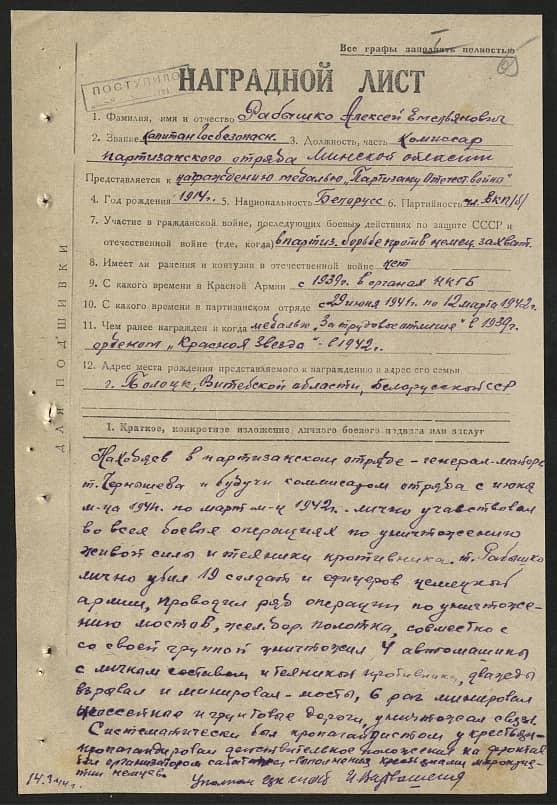 Все графы заполнять полностью
ПОСТУПИЛО
НАГРАДНОЙ ЛИСТ
1. Фамилия, имя и отчество Рабышко Алексей Емельянович
2. Звание капитан госбезопасн. 3. Должность, часть комиссар
партизанского отряда Минской области
Представляется к награждению медалью „Партизану Отечеств. войны"
4. Год рождения 1914г. 5. Национальность Белорусс 6. Партийность чл. ВКП(б)
7. Участие в гражданской войне, последующих боевых действиях по защите СССР и
отечественной войне (где, когда) в партиз. борьбе против немец. захват.
8. Имеет ли ранения и контузии в отечественной войне нет
9. С какого времени в Красной Армии с 1939г. в органах НКГБ
10. С какого времени в партизанском отряде с 29 июня 1941г. по 12 марта 1942г.
11. Чем ранее награжден и когда медалью „За трудовое отличие" в 1939г.
орденом „Красная Звезда" в 1942г.
12. Адрес места рождения представляемого к награждению и адрес его семьи
г. Полоцк, Витебской области, Белорусской ССР
ДЛЯ ПОДШИВКИ
I. Краткое, конкретное изложение личного боевого подвига или заслуг
Находяев в партизанском отряде – генерал-майора
т. Чернышева и будучи комиссаром отряда с июня
м-ца 1941г. по март м-ц 1942г. лично учавствовал
во всех боевых операциях по уничтожению
живой силы и техники противника. т. Рабышко
лично убил 19 солдат и офицеров немецкой
армии, проводил ряд операций по уничтоже-
нию мостов, жел.дор. полотна, совместно с
со своей группой уничтожил 4 автомашины
с личным составом и техникой противника, дважды
взрывал и минировал мосты, 6 раз минировал
шоссейные и грунтовые дороги, уничтожал связь.
Систематически был пропагандистом у крестьян
пропагандировал действительное положение на фронтах
был организатором выполнения крестьянами мероприя-
тий немцев.
14.3.44г. Уполном ЦК КП(б)Б